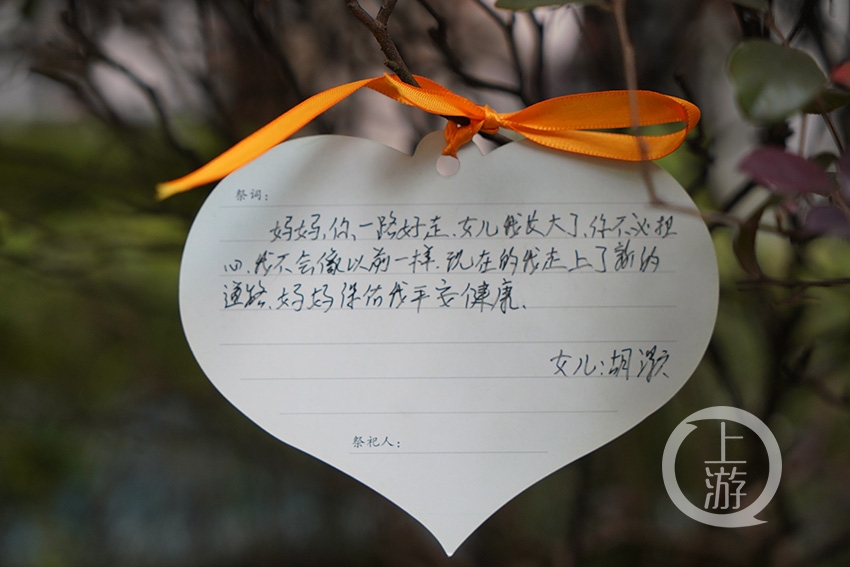 祭词：
妈妈，你，一路好走、女儿我长大了，你不必担
心、我不会像以前一样、现在的我走上了新的
道路、妈妈保佑我平安健康、
女儿：胡灏
祭祀人：
上游